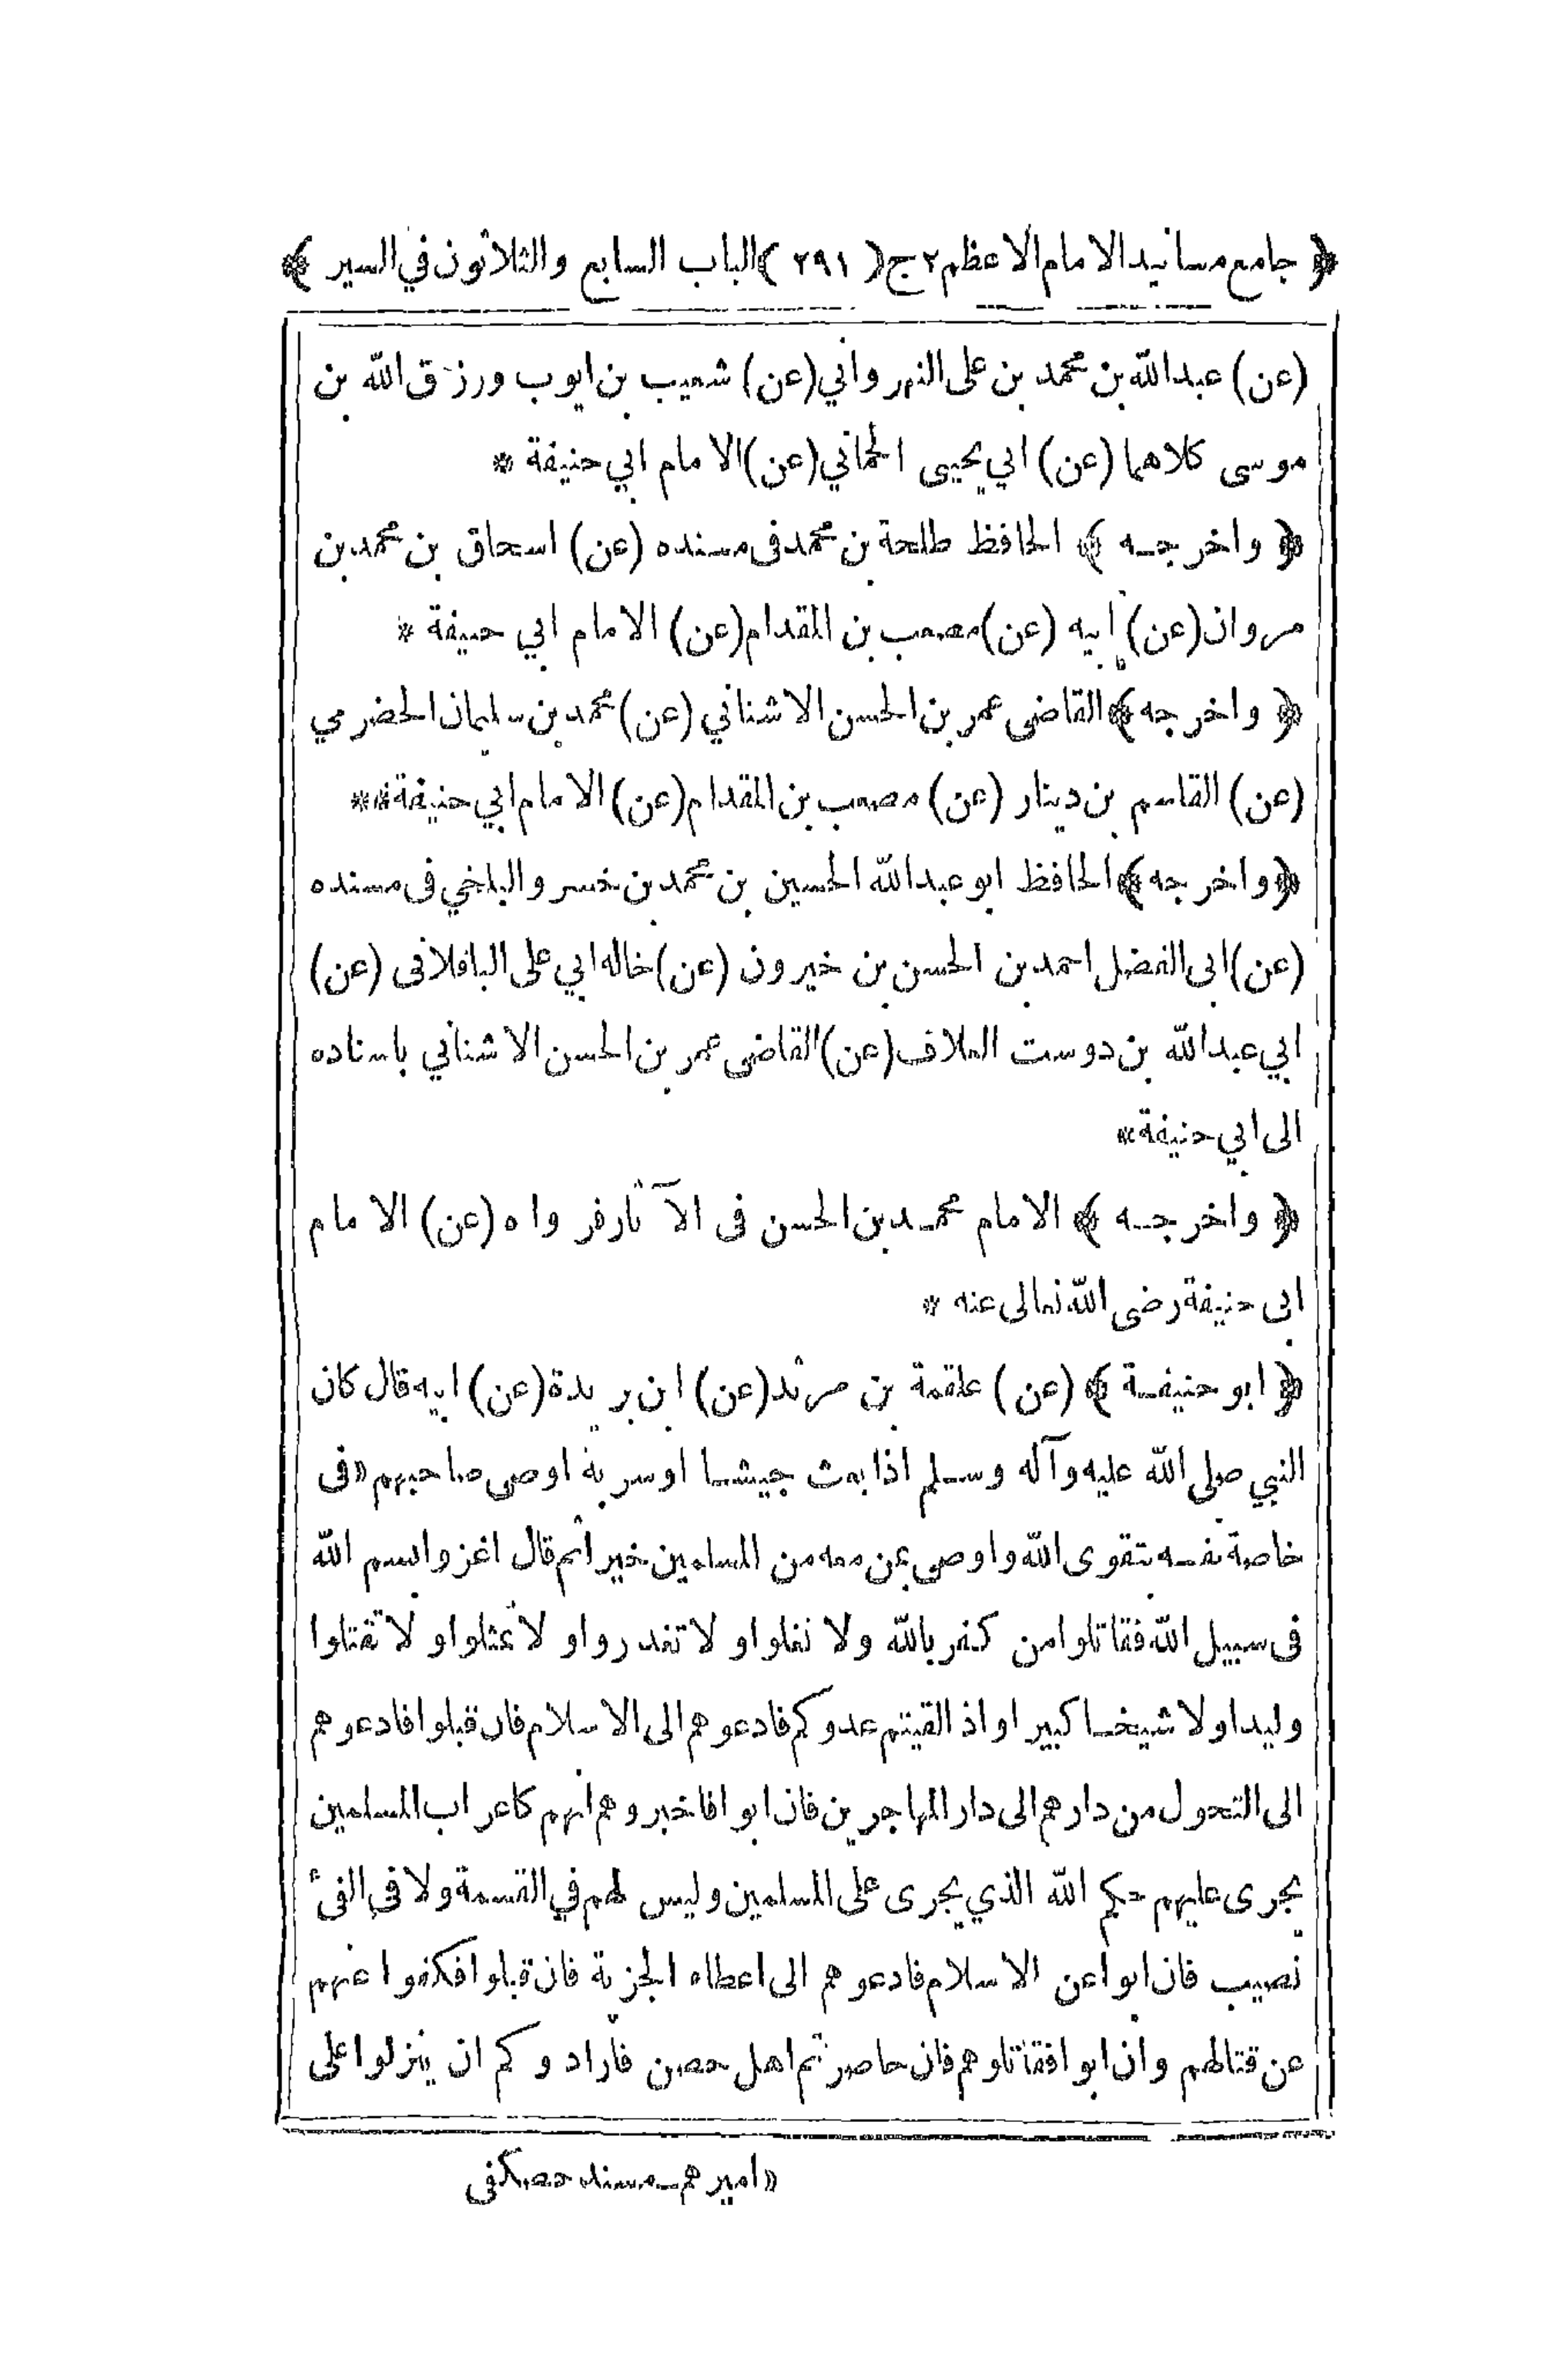 ﴿ جامع مسانيد الامام الاعظم ج٢ ﴾( ٢٩١ )﴿ الباب السابع والثلاثون في السير ﴾
(عن) عبدالله بن محمد بن على النهرواني (عن) شعيب بن ايوب ورزق الله بن
موسى كلاهما (عن) ابي يحيى الحماني (عن) الامام ابي حنيفة *
﴿ واخرجه ﴾ الحافظ طلحة بن محمد فى مسنده (عن) اسحاق بن محمد بن
مروان (عن) ابيه (عن) مصعب بن المقدام (عن) الامام ابي حنيفة *
﴿ واخرجه ﴾ القاضى عمر بن الحسن الاشناني (عن) محمد بن سليمان الحضرمي
(عن) القاسم بن دينار (عن) مصعب بن المقدام (عن) الامام ابي حنيفة **
﴿ واخرجه ﴾ الحافظ ابو عبدالله الحسين بن محمد بن خسرو البلخي فى مسنده
(عن) ابى الفضل احمد بن الحسن بن خيرون (عن) خاله ابي على الباقلانى (عن)
ابي عبدالله بن دوست العلاف (عن) القاضى عمر بن الحسن الاشناني باسناده
الى ابي حنيفة *
﴿ واخرجه ﴾ الامام محمد بن الحسن فى الآثار فرواه (عن) الامام
ابى حنيفة رضى الله تعالى عنه *
﴿ ابو حنيفة ﴾ (عن) علقمة بن مرثد (عن) ابن بريدة (عن) ابيه قال كان
النبي صلى الله عليه وآله وسلم اذا بعث جيشا اوسرية اوصى صاحبهم «فى
خاصة نفسه بتقوى الله واوصى بمن معه من المسلمين خيرا ثم قال اغزوا بسم الله
فى سبيل الله فقاتلوا من كفر بالله ولا تغلوا ولا تغدروا ولا تمثلوا ولا تقتلوا
وليدا ولا شيخا كبيرا واذا لقيتم عدوكم فادعوهم الى الاسلام فان قبلوا فادعوهم
الى التحول من دارهم الى دار المهاجرين فان ابوا فاخبروهم انهم كاعراب المسلمين
يجرى عليهم حكم الله الذي يجرى على المسلمين وليس لهم في القسمة ولا في الفىء
نصيب فان ابوا عن الاسلام فادعوهم الى اعطاء الجزية فان قبلوا فكفوا عنهم
عن قتالهم وان ابوا فقاتلوهم فان حاصرتم اهل حصن فارادوكم ان ينزلوا على
«اميرهم ـ مسند حصكفى